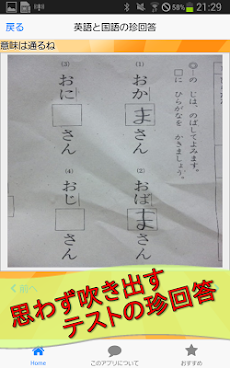 53%
21:29
戻る
英語と国語の珍回答
意味は通るね
◎―の じは、のばしてよみます。
□に ひらがなを かきましょう。
(1)
おかまさん
(2)
おばまさん
(3)
おに□さん
(4)
おじ□さん
前へ
思わず吹き出す
テストの珍回答
Home
このアプリについて
おすすめ